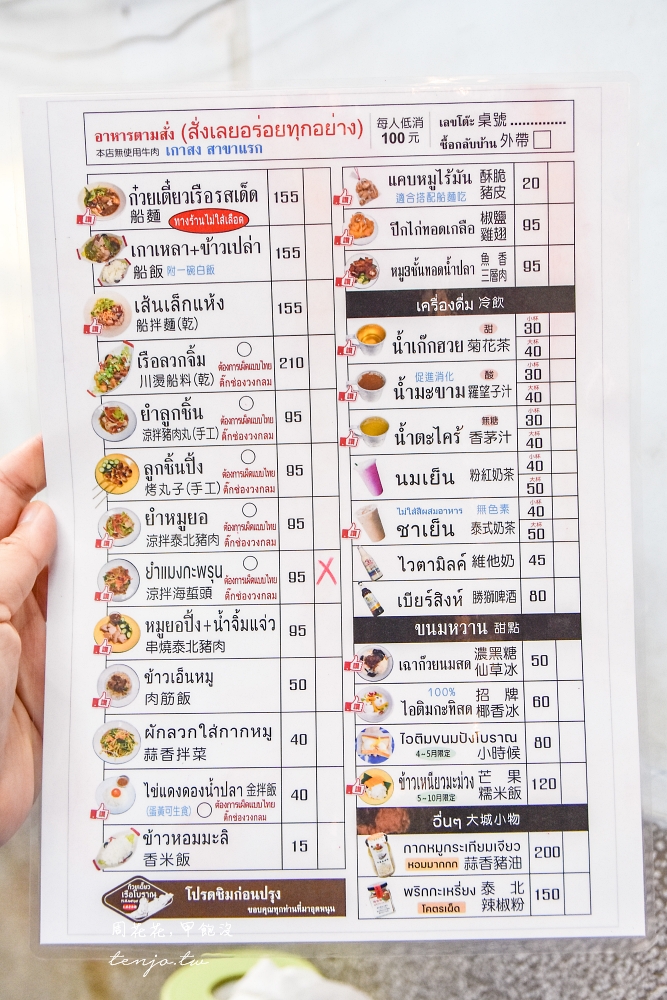 อาหารตามสั่ง (สั่งเลยอร่อยทุกอย่าง)
本店無使用牛肉 เกาสง สาขาแรก
每人低消
100元
เลขโต๊ะ 桌號 ..............
ซื้อกลับบ้าน 外帶
ก๋วยเตี๋ยวเรือรสเด็ด 155
船麵 ทางร้านไม่ใส่เลือด
เกาเหลา+ข้าวเปล่า 155
船飯 附一碗白飯
เส้นเล็กแห้ง 155
船拌麵(乾)
เรือลวกจิ้ม 210
ต้องการเผ็ดแบบไทย
川燙船料(乾) ติ๊กช่องวงกลม
ยำลูกชิ้น 95
ต้องการเผ็ดแบบไทย
涼拌豬肉丸(手工) ติ๊กช่องวงกลม
ลูกชิ้นปิ้ง 95
ต้องการเผ็ดแบบไทย
烤丸子(手工) ติ๊กช่องวงกลม
ยำหมูยอ 95
ต้องการเผ็ดแบบไทย
涼拌泰北豬肉 ติ๊กช่องวงกลม
ยำแมงกะพรุน 95 X
ต้องการเผ็ดแบบไทย
涼拌海蜇頭 ติ๊กช่องวงกลม
หมูยอปิ้ง+น้ำจิ้มแจ่ว 95
串燒泰北豬肉
ข้าวเอ็นหมู 50
肉筋飯
ผักลวกใส่กากหมู 40
蒜香拌菜
ไข่แดงดองน้ำปลา 金拌飯 40
(蛋黃可生食) ต้องการเผ็ดแบบไทย
ติ๊กช่องวงกลม
ข้าวหอมมะลิ 15
香米飯
ก๋วยเตี๋ยว
เรือโบราณ
โปรดชิมก่อนปรุง
ขอบคุณทุกท่านที่มาอุดหนุน
แคบหมูไร้มัน 酥脆 20
適合搭配船麵吃 豬皮
ปีกไก่ทอดเกลือ 椒鹽 95
雞翅
หมู3ชั้นทอดน้ำปลา 魚香 95
三層肉
เครื่องดื่ม 冷飲
น้ำเก๊กฮวย 甜 菊花茶 小杯 30
大杯 40
促進消化 酸 小杯 30
น้ำมะขาม 羅望子汁 大杯 40
น้ำตะไคร้ 無糖 香茅汁 小杯 30
大杯 40
นมเย็น 粉紅奶茶 小杯 40
大杯 50
ไม่ใส่สีผสมอาหาร 無色素 小杯 40
ชาเย็น 泰式奶茶 大杯 50
ไวตามิลค์ 維他奶 45
เบียร์สิงห์ 勝獅啤酒 80
ขนมหวาน 甜點
เฉาก๊วยนมสด 濃黑糖 50
仙草冰
100% 招牌 60
ไอติมกะทิสด 椰香冰
ไอติมขนมปังโบราณ 80
4~5月限定 小時候
ข้าวเหนียวมะม่วง 芒果 120
5~10月限定 糯米飯
อื่นๆ 大城小物
กากหมูกระเทียมเจียว 200
หอมมากกก 蒜香豬油
พริกกะเหรี่ยง 泰北 150
โคตรเด็ด 辣椒粉
周花花,甲飽沒
tenjo.tw